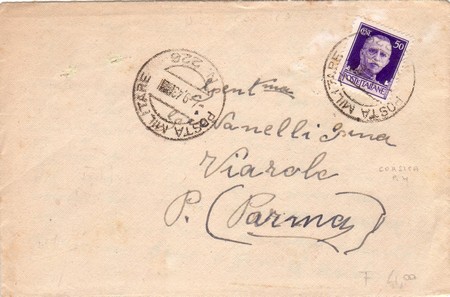 50
POSTE ITALIANE
POSTA MILITARE
N. 226
POSTA MILITARE
Gent.ma
Vanelli Gina
Viarolo
P. (Parma)
CORSICA